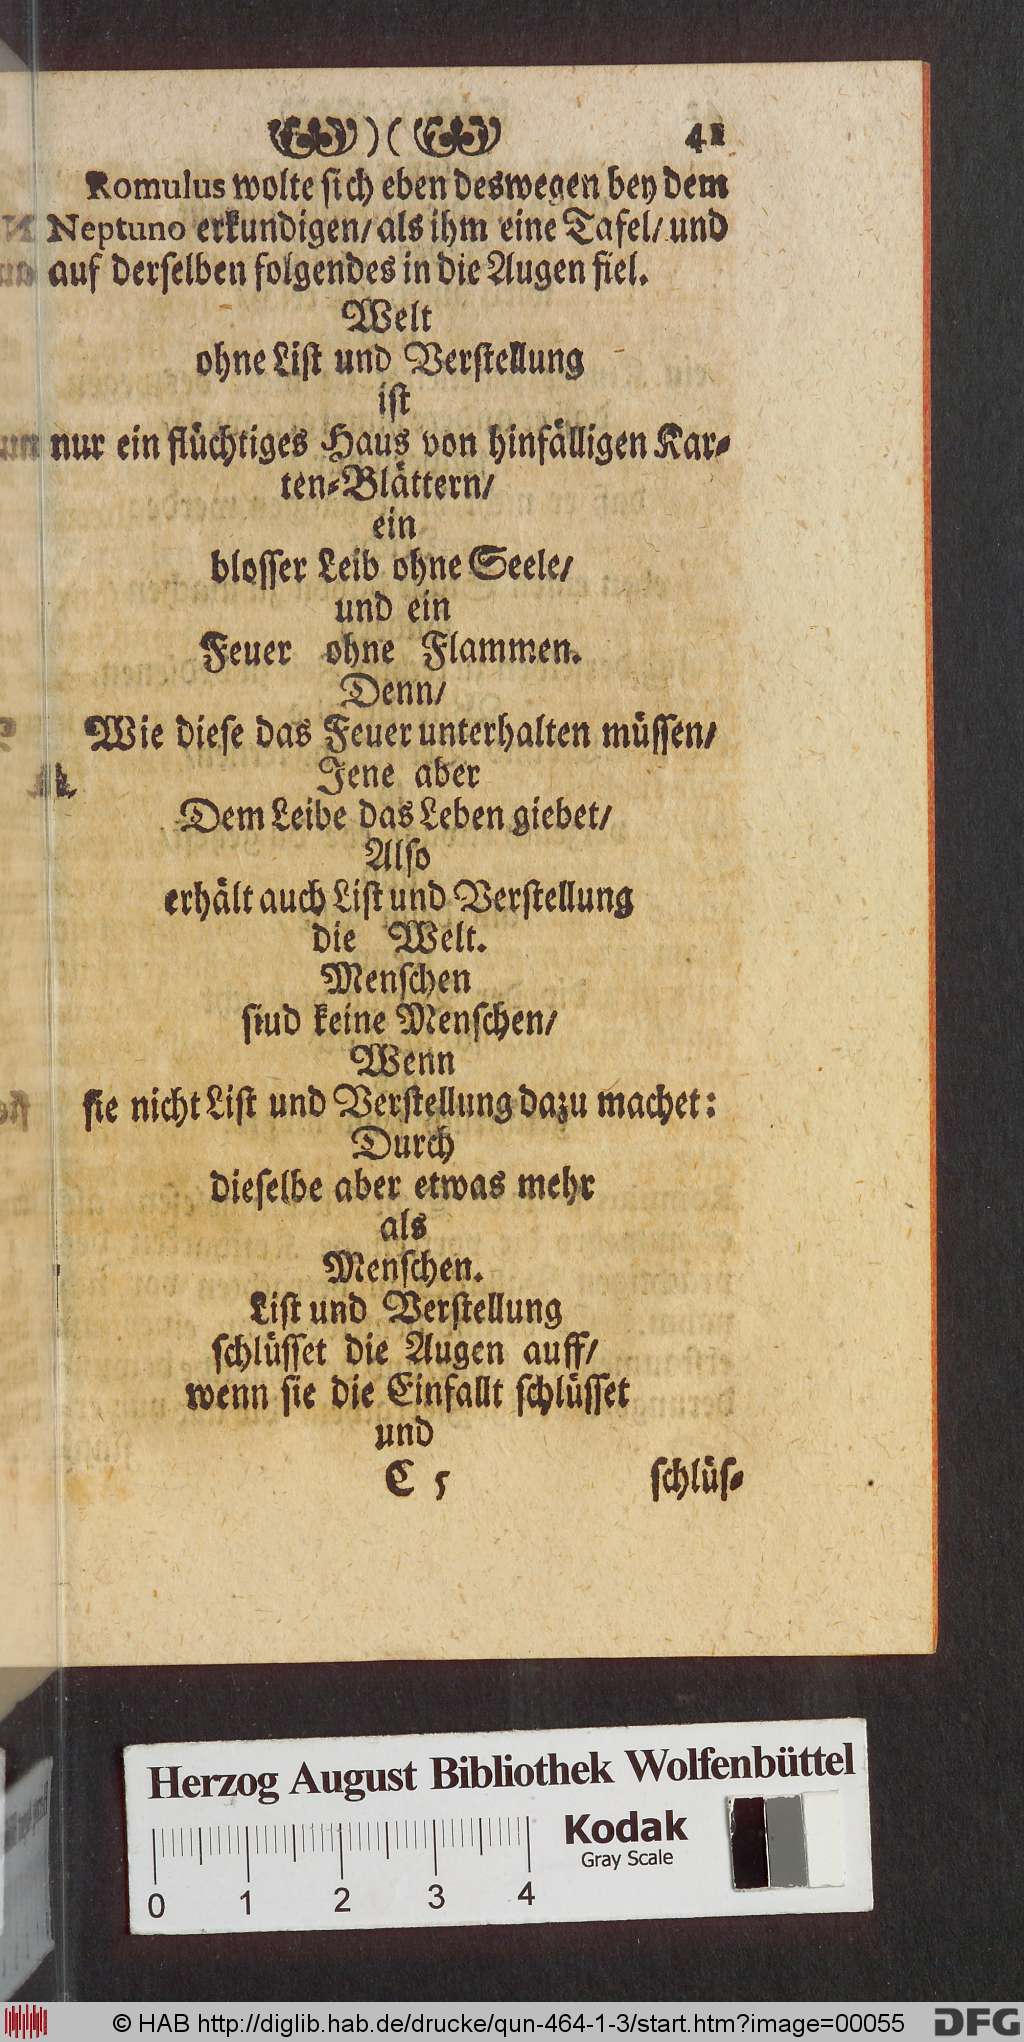 )( 41
Romulus wolte sich eben deswegen bey dem
Neptuno erkundigen/ als ihm eine Tafel/ und
auf derselben folgendes in die Augen fiel.
Welt
ohne List und Verstellung
ist
nur ein flüchtiges Haus von hinfälligen Kar-
ten-Blättern/
ein
blosser Leib ohne Seele/
und ein
Feuer ohne Flammen.
Denn/
Wie diese das Feuer unterhalten müssen/
Jene aber
Dem Leibe das Leben giebet/
Also
erhält auch List und Verstellung
die Welt.
Menschen
siud keine Menschen/
Wenn
sie nicht List und Verstellung dazu machet:
Durch
dieselbe aber etwas mehr
als
Menschen.
List und Verstellung
schlüsset die Augen auff/
wenn sie die Einfallt schlüsset
und
C 5 schlüs-
Herzog August Bibliothek Wolfenbüttel
Kodak
Gray Scale
0 1 2 3 4
© HAB http://diglib.hab.de/drucke/qun-464-1-3/start.htm?image=00055
DFG